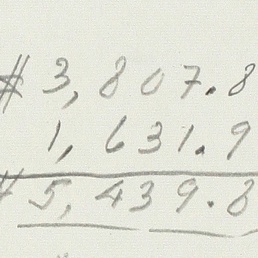 # 3,807.8
1,631.9
# 5,439.8